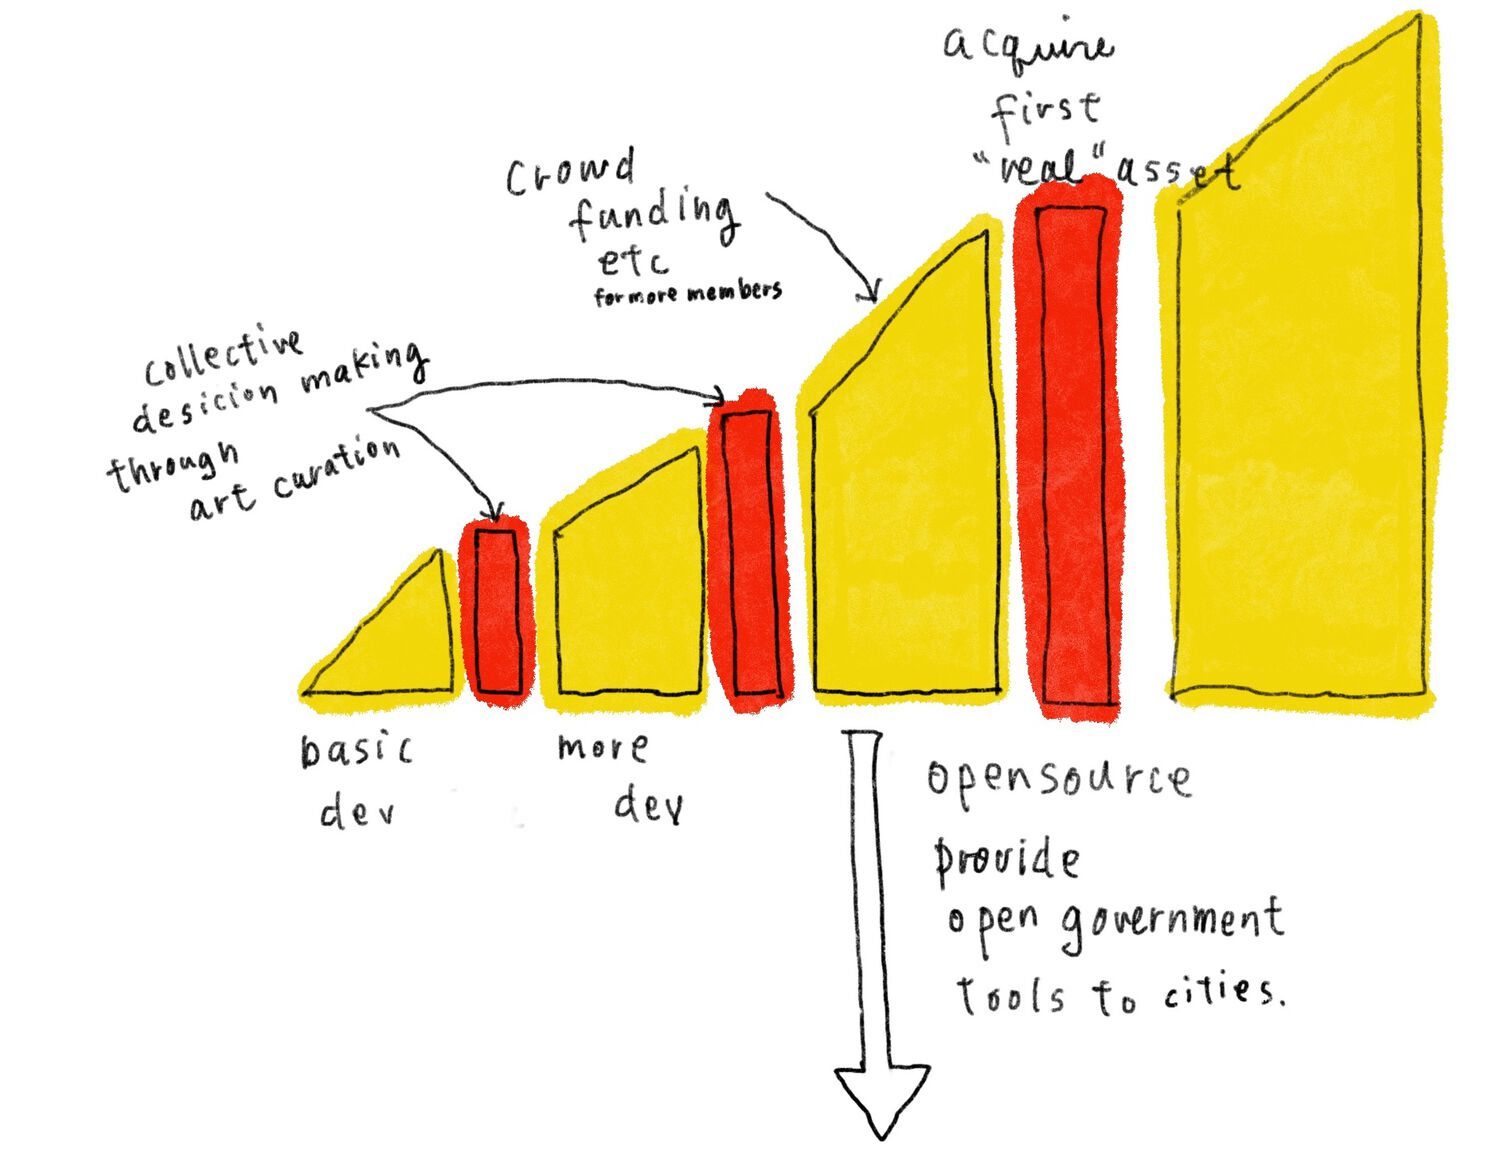 acquire
first
"real" asset
Crowd
funding
etc
for more members
collective
desicion making
through
art curation
basic
dev
more
dev
opensource
provide
open government
tools to cities.